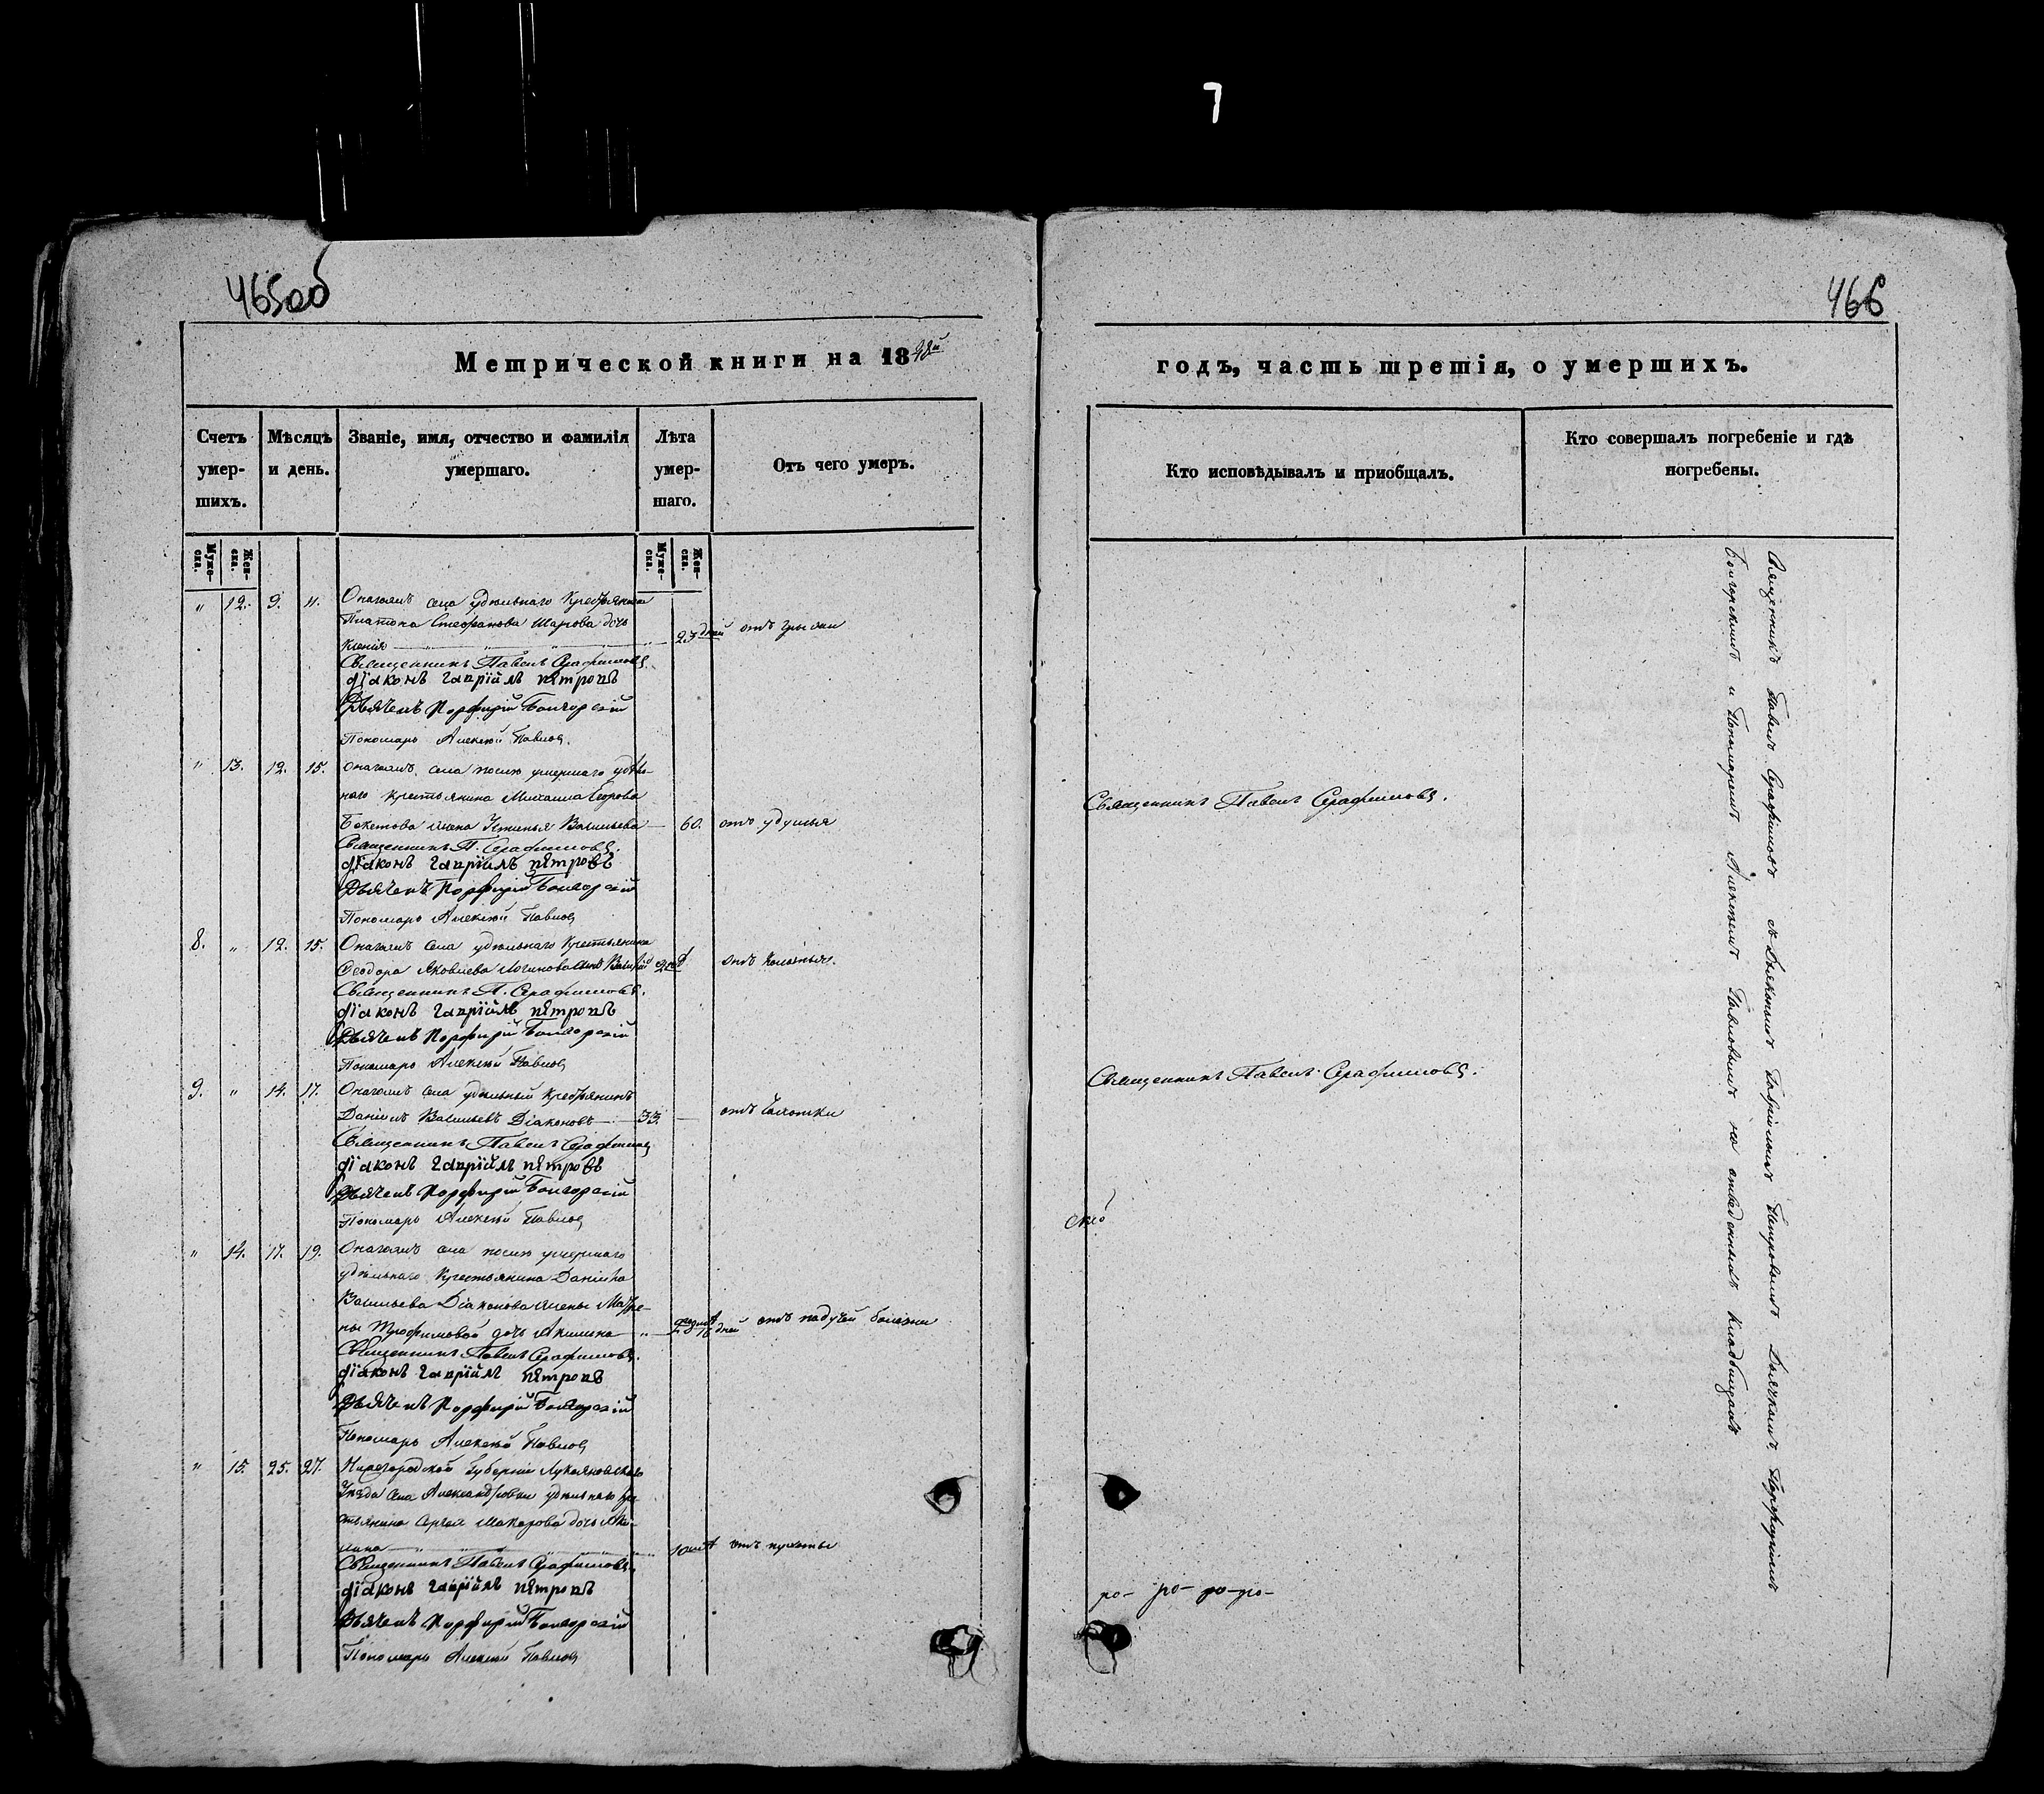 7
465об
466
Метрической книги на 1848й
годъ, часть третія, о умершихъ.
Счетъ умер-шихъ.
Мѣсяцъ и день.
Званіе, имя, отчество и фамилія умершаго.
Лѣта умер-шаго.
Отъ чего умеръ.
Кто исповѣдывалъ и приобщалъ.
Кто совершалъ погребеніе и гдѣ погребены.
Муже-ска.
Жен-ска.
Муже-ска.
Жен-ска.
" 12. 9. 11. села удѣльнаго Крестьянина
Платона Стефанова Шарова дочь
Ксенія 23 дней отъ грыжи
Священникъ Павелъ Серафимовъ
діаконъ гавріилъ петровъ
Дьячекъ Порфирій Болгорскій
Пономарь Алексѣй Павловъ.
" 13. 12. 15. села послѣ умершаго удѣль-
наго крестьянина Михаила Егорова
Бекетова жена Устинья Васильева 60. отъ удушья
Священникъ П. Серафимовъ.
діаконъ гавріилъ петровъ
Дьячекъ Порфирій Болгорскій
Пономарь Алексѣй Павловъ
Священникъ Павелъ Серафимовъ.
8. " 12. 15. села удѣльнаго Крестьянина
Феодора Яковлева Логинова сынъ
Священникъ П. Серафимовъ.
діаконъ гавріилъ петровъ
Дьячекъ Порфирій Болгорскій
Пономарь Алексѣй Павловъ
9. " 14. 17. села удѣльный Крестьянинъ
Даніилъ Васильевъ Діаконовъ 33. отъ чахотки
Священникъ Павелъ Серафимовъ
діаконъ гавріилъ петровъ
Дьячекъ Порфирій Болгорскій
Пономарь Алексѣй Павловъ
Священникъ Павелъ Серафимовъ.
" 14. 17. 19. села послѣ умершаго
удѣльнаго Крестьянина Даніила
Васильева Діаконова жены Матре-
ны Трофимовой дочь Акилина отъ падучей болезни
Священникъ Павелъ Серафимовъ.
діаконъ гавріилъ петровъ
Дьячекъ Порфирій Болгорскій
Пономарь Алексѣй Павловъ
" 15. 25. 27. Нижегородской Губерніи Лукояновскаго
Уѣзда села Александровки удѣльнаго кре-
стьянина Сергея Макарова дочь Аки-
лина 10 лѣтъ
Священникъ Павелъ Серафимовъ.
діаконъ гавріилъ петровъ
Дьячекъ Порфирій Болгорскій
Пономарь Алексѣй Павловъ
Священникъ Павелъ Серафимовъ съ Дьякономъ Гавріиломъ Петровымъ Дьячкомъ Порфиріемъ
Болгорскимъ и Пономаремъ Алексѣемъ Павловымъ на отведенномъ кладбищѣ